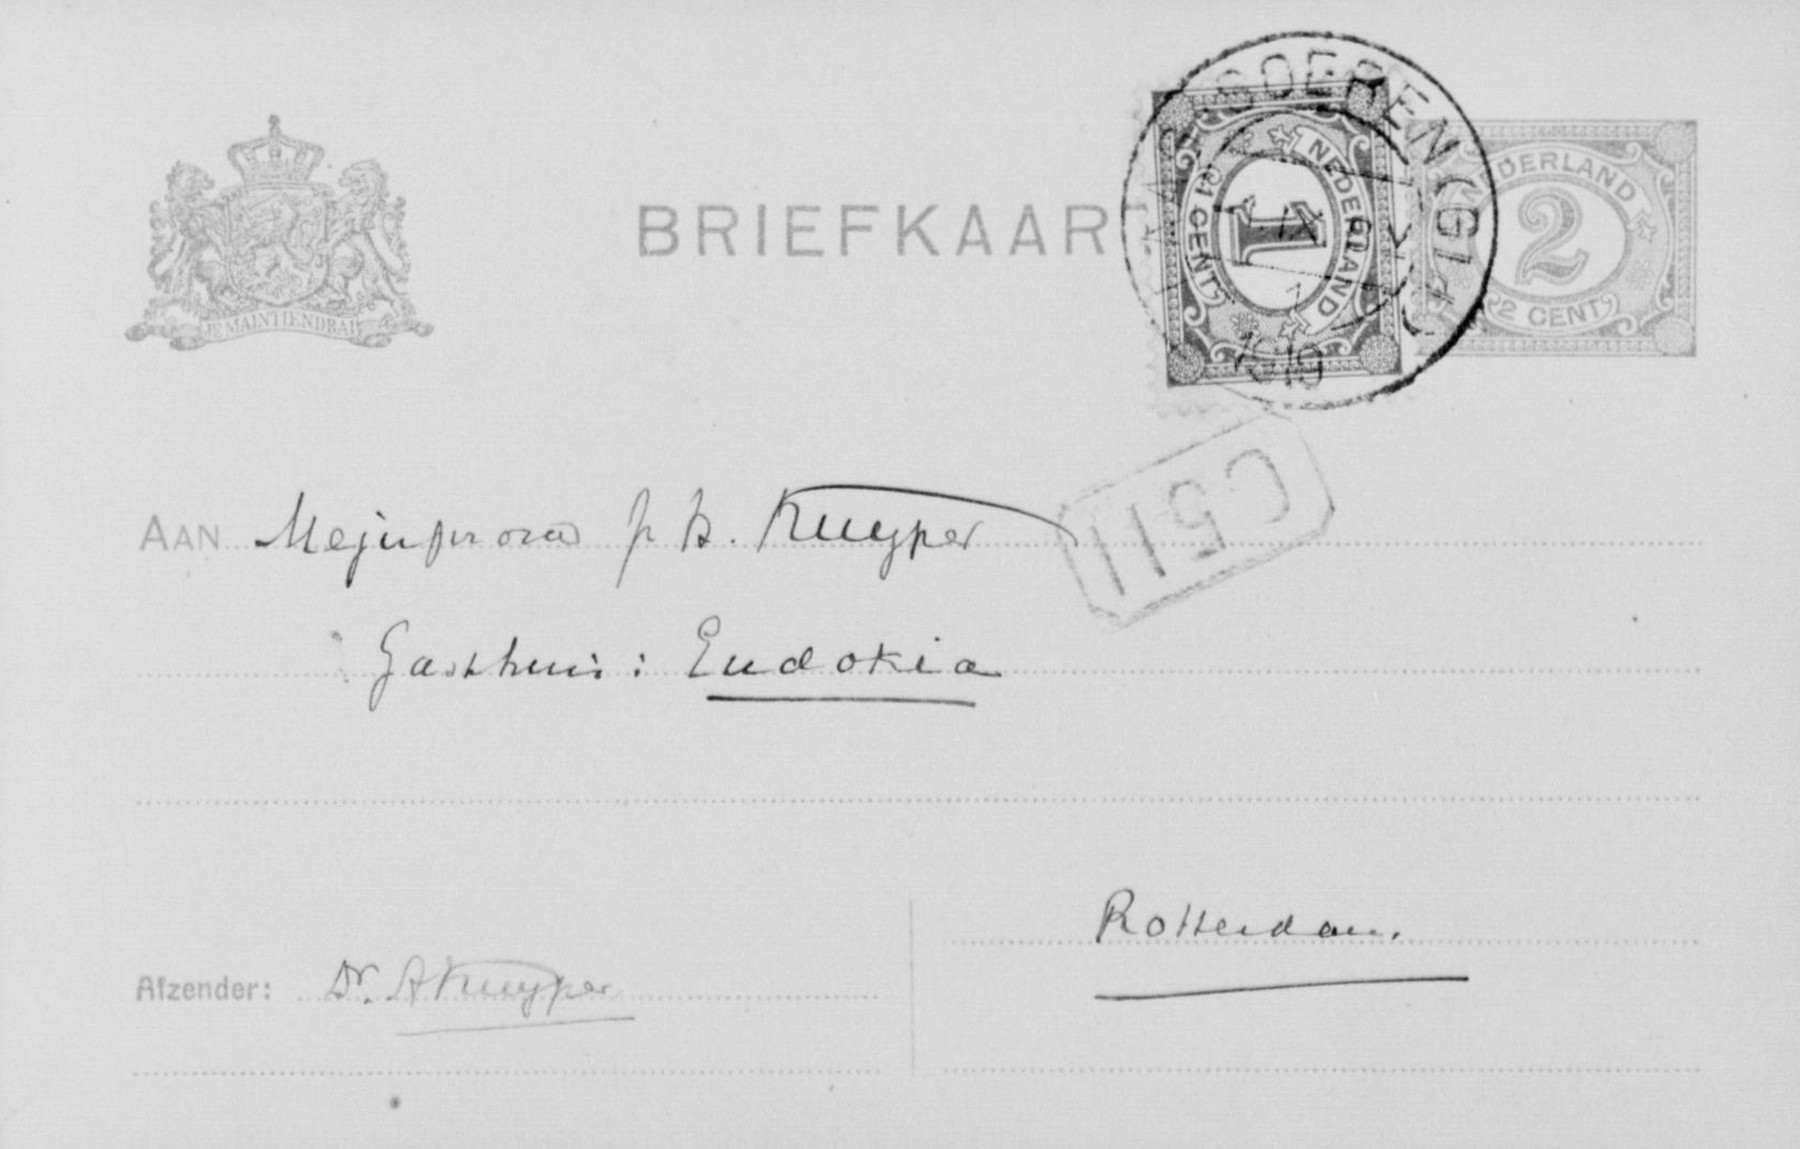 JE MAINTIENDRAI
BRIEFKAART
NEDERLAND
1
1 CENT
NEDERLAND
2
2 CENT
SOEREN (GLD
1919
C511
AAN Mejufvrouw Kuyper
Gasthuis: Eudokia
Rotterdam.
Afzender: Dr. A Kuyper